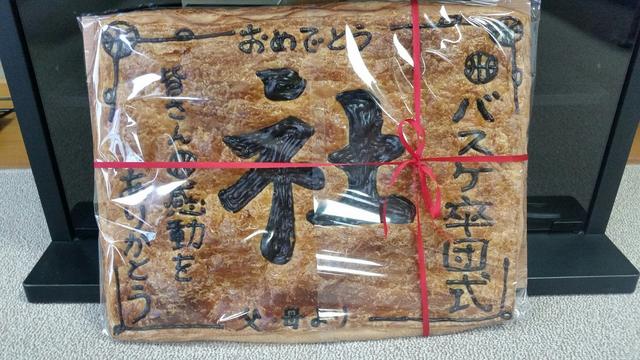 おめでとう
バスケ卒団式
社
皆さんの感動を
ありがとう
父母より